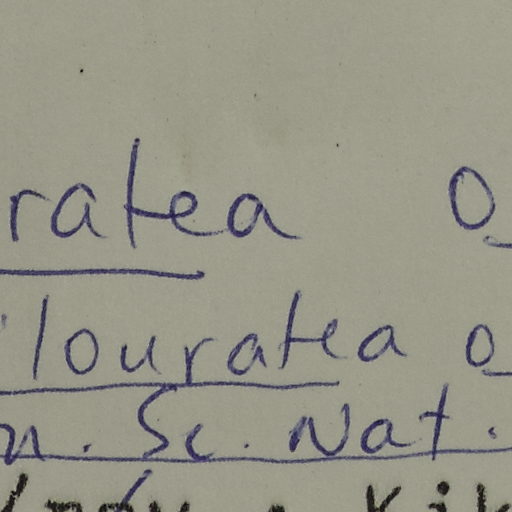 ratea O
ilouratea o
n. Sc. Nat.